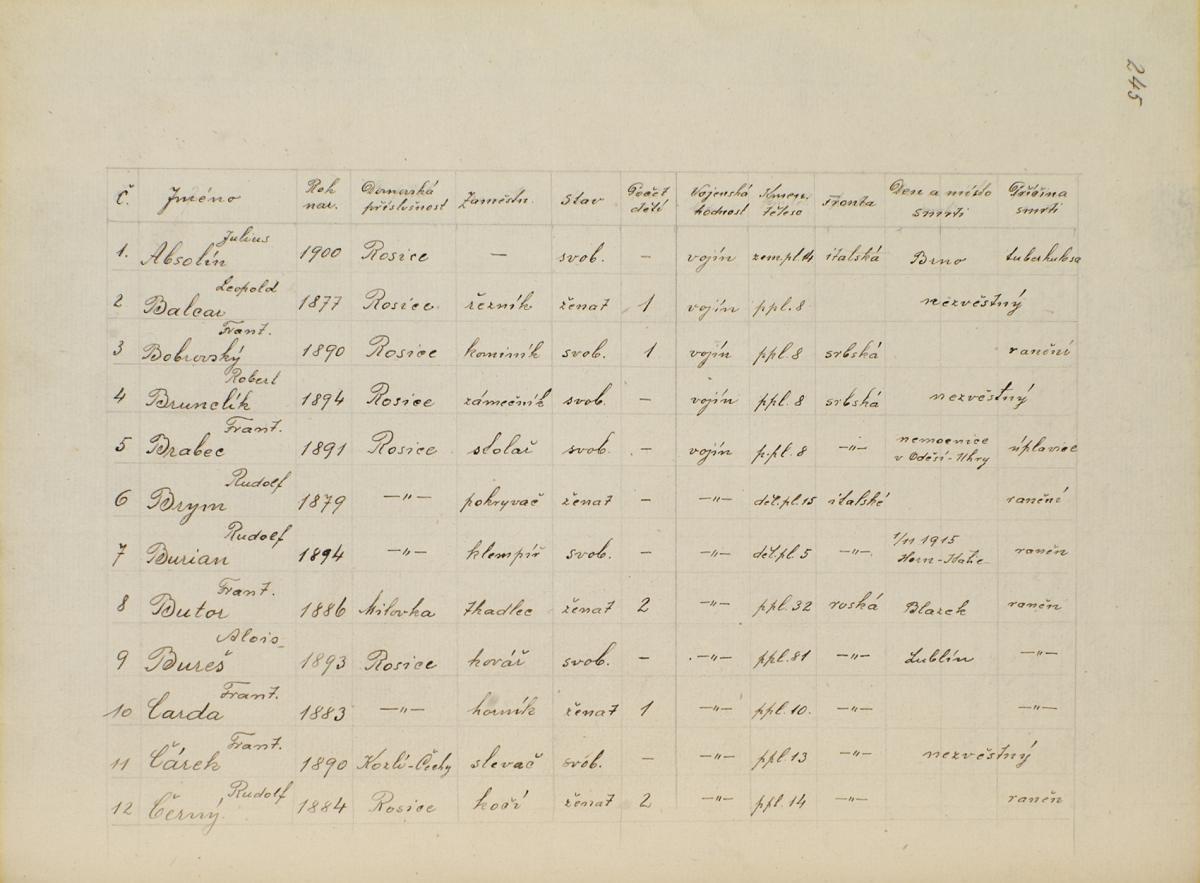 245
Č. Jméno Rok nar. Domovská příslušnost Zaměstn. Stav Počet dětí Vojenská hodnost Kmen. těleso Fronta Den a místo smrti Příčina smrti
1. Absolín Julius 1900 Rosice — svob. — vojín zem.pl.14 italská Brno tuberkulosa
2 Balcar Leopold 1877 Rosice řezník ženat 1 vojín ppl.8 nezvěstný
3 Bobrovský Frant. 1890 Rosice kominík svob. 1 vojín ppl.8 srbská ranění
4 Brunclík Robert 1894 Rosice zámečník svob. — vojín ppl.8 srbská nezvěstný
5 Brabec Frant. 1891 Rosice stolař svob. — vojín ppl.8 —"— nemocnice v Oděsí-Uhry úplavice
6 Brym Rudolf 1879 —"— pokryvač ženat — —"— děl.pl.15 italské ranění
7 Burian Rudolf 1894 —"— klempíř svob. — —"— děl.pl.5 —"— 1/11 1915 raněn
8 Butor Frant. 1886 Milovka tkadlec ženat 2 —"— ppl.32 ruská Blazek raněn
9 Bureš Alois 1893 Rosice kovář svob. — —"— ppl.81 —"— Lublín —"—
10 Carda Frant. 1883 —"— horník ženat 1 —"— ppl.10. —"— —"—
11 Čárek Frant. 1890 Kozlí-Čechy slevač svob. — —"— ppl.13 —"— nezvěstný
12 Černý Rudolf 1884 Rosice kočí ženat 2 —"— ppl.14 —"— raněn